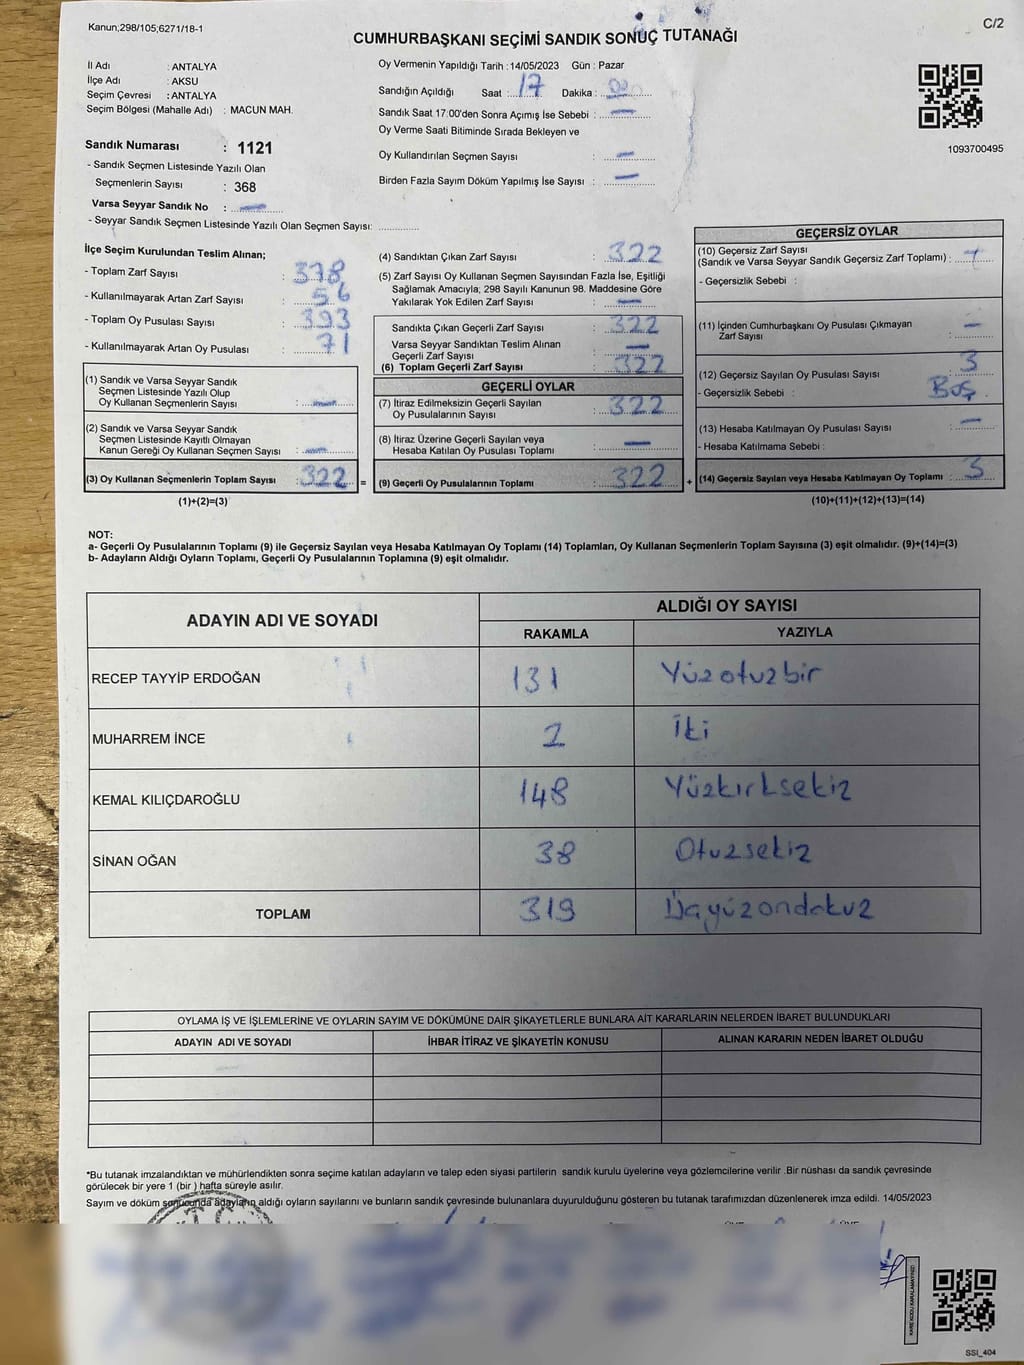 Kanun;298/105;6271/18-1
C/2
CUMHURBAŞKANI SEÇİMİ SANDIK SONUÇ TUTANAĞI
İl Adı : ANTALYA
İlçe Adı : AKSU
Seçim Çevresi : ANTALYA
Seçim Bölgesi (Mahalle Adı) : MACUN MAH.
Sandık Numarası : 1121
- Sandık Seçmen Listesinde Yazılı Olan
Seçmenlerin Sayısı : 368
Varsa Seyyar Sandık No : —
- Seyyar Sandık Seçmen Listesinde Yazılı Olan Seçmen Sayısı: ..............
Oy Vermenin Yapıldığı Tarih : 14/05/2023 Gün : Pazar
Sandığın Açıldığı Saat : 17 Dakika : 00
Sandık Saat 17:00'den Sonra Açımış İse Sebebi : —
Oy Verme Saati Bitiminde Sırada Bekleyen ve
Oy Kullandırılan Seçmen Sayısı : —
Birden Fazla Sayım Döküm Yapılmış İse Sayısı : —
1093700495
İlçe Seçim Kurulundan Teslim Alınan;
- Toplam Zarf Sayısı : 378
- Kullanılmayarak Artan Zarf Sayısı : 56
- Toplam Oy Pusulası Sayısı : 393
- Kullanılmayarak Artan Oy Pusulası : 71
(1) Sandık ve Varsa Seyyar Sandık
Seçmen Listesinde Yazılı Olup
Oy Kullanan Seçmenlerin Sayısı : —
(2) Sandık ve Varsa Seyyar Sandık
Seçmen Listesinde Kayıtlı Olmayan
Kanun Gereği Oy Kullanan Seçmen Sayısı : —
(3) Oy Kullanan Seçmenlerin Toplam Sayısı : 322 =
(1)+(2)=(3)
(4) Sandıktan Çıkan Zarf Sayısı : 322
(5) Zarf Sayısı Oy Kullanan Seçmen Sayısından Fazla İse, Eşitliği
Sağlamak Amacıyla; 298 Sayılı Kanunun 98. Maddesine Göre
Yakılarak Yok Edilen Zarf Sayısı : —
Sandıkta Çıkan Geçerli Zarf Sayısı : 322
Varsa Seyyar Sandıktan Teslim Alınan
Geçerli Zarf Sayısı : —
(6) Toplam Geçerli Zarf Sayısı : 322
GEÇERLİ OYLAR
(7) İtiraz Edilmeksizin Geçerli Sayılan
Oy Pusulalarının Sayısı : 322
(8) İtiraz Üzerine Geçerli Sayılan veya
Hesaba Katılan Oy Pusulası Toplamı : —
(9) Geçerli Oy Pusulalarının Toplamı : 322 +
GEÇERSİZ OYLAR
(10) Geçersiz Zarf Sayısı
(Sandık ve Varsa Seyyar Sandık Geçersiz Zarf Toplamı) :
- Geçersizlik Sebebi :
(11) İçinden Cumhurbaşkanı Oy Pusulası Çıkmayan
Zarf Sayısı : —
(12) Geçersiz Sayılan Oy Pusulası Sayısı : 3
- Geçersizlik Sebebi : Boş
(13) Hesaba Katılmayan Oy Pusulası Sayısı : —
- Hesaba Katılmama Sebebi :
(14) Geçersiz Sayılan veya Hesaba Katılmayan Oy Toplamı : 3
(10)+(11)+(12)+(13)=(14)
NOT:
a- Geçerli Oy Pusulalarının Toplamı (9) ile Geçersiz Sayılan veya Hesaba Katılmayan Oy Toplamı (14) Toplamları, Oy Kullanan Seçmenlerin Toplam Sayısına (3) eşit olmalıdır. (9)+(14)=(3)
b- Adayların Aldığı Oyların Toplamı, Geçerli Oy Pusulalarının Toplamına (9) eşit olmalıdır.
ADAYIN ADI VE SOYADI
ALDIĞI OY SAYISI
RAKAMLA YAZIYLA
RECEP TAYYİP ERDOĞAN 131 Yüzotuzbir
MUHARREM İNCE 2 İki
KEMAL KILIÇDAROĞLU 148 Yüzkırksekiz
SİNAN OĞAN 38 Otuzsekiz
TOPLAM 319 Üçyüzondokuz
OYLAMA İŞ VE İŞLEMLERİNE VE OYLARIN SAYIM VE DÖKÜMÜNE DAİR ŞİKAYETLERLE BUNLARA AİT KARARLARIN NELERDEN İBARET BULUNDUKLARI
ADAYIN ADI VE SOYADI İHBAR İTİRAZ VE ŞİKAYETİN KONUSU ALINAN KARARIN NEDEN İBARET OLDUĞU
*Bu tutanak imzalandıktan ve mühürlendikten sonra seçime katılan adayların ve talep eden siyasi partilerin sandık kurulu üyelerine veya gözlemcilerine verilir .Bir nüshası da sandık çevresinde
görülecek bir yere 1 (bir ) hafta süreyle asılır.
Sayım ve döküm sonucunda adayların aldığı oyların sayılarını ve bunların sandık çevresinde bulunanlara duyurulduğunu gösteren bu tutanak tarafımızdan düzenlenerek imza edildi. 14/05/2023
KARE KODU KARALAMAYINIZ!
SSI_404